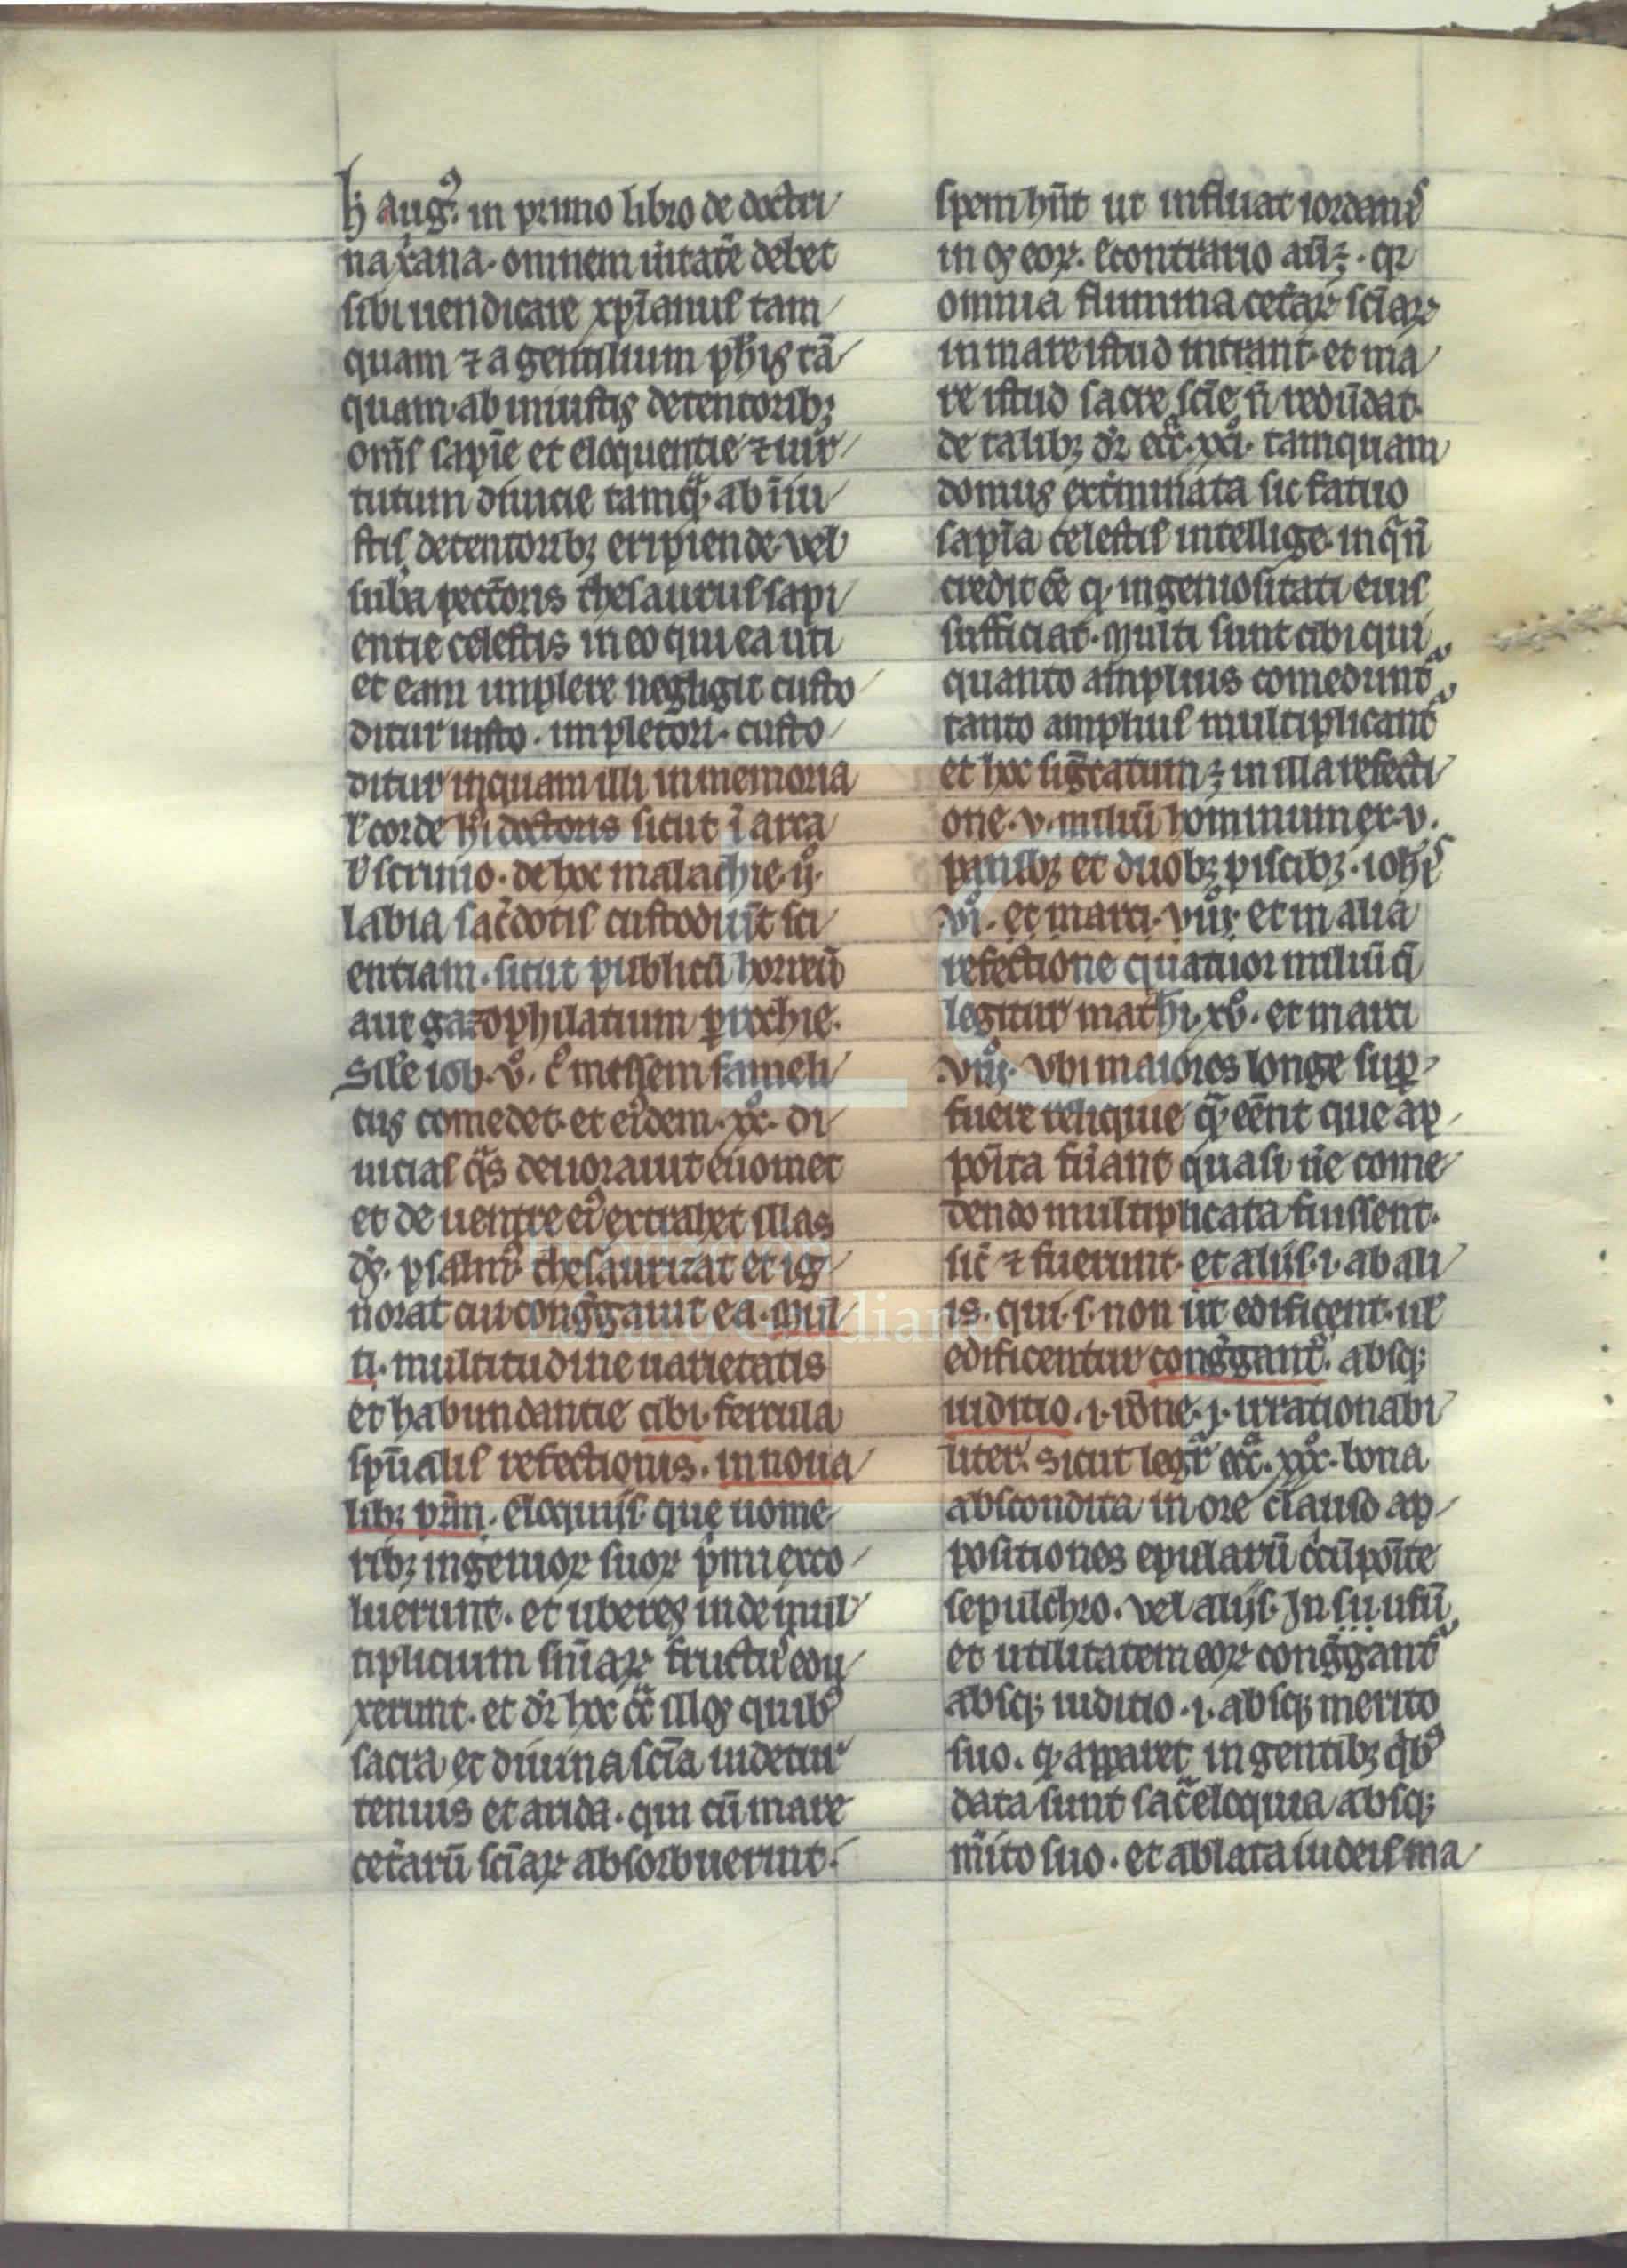 h̄ augꝰ. in primo libro de doctri
na xana. omnem ueritatē debet
sibi uendicare xpianus tam
quam ⁊ a gentilium phīs tā
quam ab iniustis detentoribꝫ
om̄s sapīe et eloquentie ⁊ uir
tutum diuicie tamqᵃ ab īiu
stis detentoribꝫ eripiende. vel
pectoris thesaurus sapi
entie celestis in eo qui ea uti
et eam implere negligit custo
ditur iusto. impletori. custo
ditur inquam illi in memoria
ł corde hi doctoris sicut ī arca
ł scrinio. de hoc malachie. ijº.
labia sacdotis custodiūt sci
entiam. sicut publicū horreū
aut gazophilatium parrochie.
Sił'e iob. vº. messem fameli
cus comedet. et eiꝰdem. xxº. di
uicias qᵃs deuorauit euomet
et de uentre eiꝰ extrahet illas
psalmꝰ thesaurizat et ig
norat cui congregauit ea. mul
ti. multitudine uarietatis
et habundantie cibi. fercula
spūalis refectionis. in noua
libꝫ eloquijs. que uome
ribꝫ ingeniorꝝ suorꝝ primi exco
luerunt. et uberes inde mul
tiplicium snīarꝝ fructus edu
xerunt. et dr̄ hoc illos quibꝰ
sacra et diuina scīa uidetur
tenuis et arida. qui cū mare
cetarū scīarꝝ absorbuerint.
spem hn̄t ut influat iordanis
in os eorꝝ. econtrario ał ꝫ. qr
omnia flumina cetarꝝ scīarꝝ
in mare istud intrant. et ma
re istud sacre scīe n̄ redūdat.
de talibꝫ dr̄ eccᵃ. xxiº. tamquam
domus exterminata sic fatuo
sapīa celestis intellige. in qᵃn̄
credit ēē qᵈ ingeniositati eius
sufficiat. Multi sunt cibi qui
quanto amplius comeduntᵘʳ
tanto amplius multiplicantᵘʳ
et hoc signatum ꝫ in illa refecti
one. v. miliū hominum ex. v.
panibꝫ et duobꝫ piscibꝫ. iohīs
viº. et marci. viijº. et in alia
refectione quatuor miliū
legitur mathi. xvº. et marci
viijº. vbi maiores longe supꝑ
fuere reliquie qᵃ eēnt que ap
poīta fuant quasi ne come
dendo multiplicata fuissent.
sic ⁊ fuerunt. et alijs. i. ab ali
is. qui. s. non ut edificent. ut
edificentur congregantᵘʳ. absqꝫ
iuditio. i. rōne. i. irrationabi
liter. Sicut legr̄ eccᵃ. xxxº. bona
abscondita in ore clauso ap
positiones epularū ccūpoīte
sepulchro. vel alijs. In suū usū
et utilitatem eorꝝ congregantᵘʳ
absqꝫ iuditio. i. absqꝫ merito
suo. qᵈ apparet in gentibꝫ qᵇꝰ
data sunt sacᵃ eloquia absqꝫ
mīto suo. et ablata iudeis ma